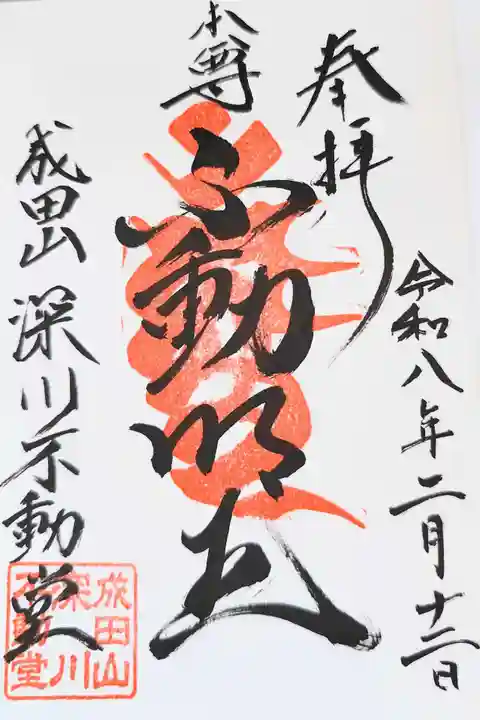 奉拝
令和八年二月十二日
本尊
不動明王
成田山深川不動堂
成田山
深川
不動堂